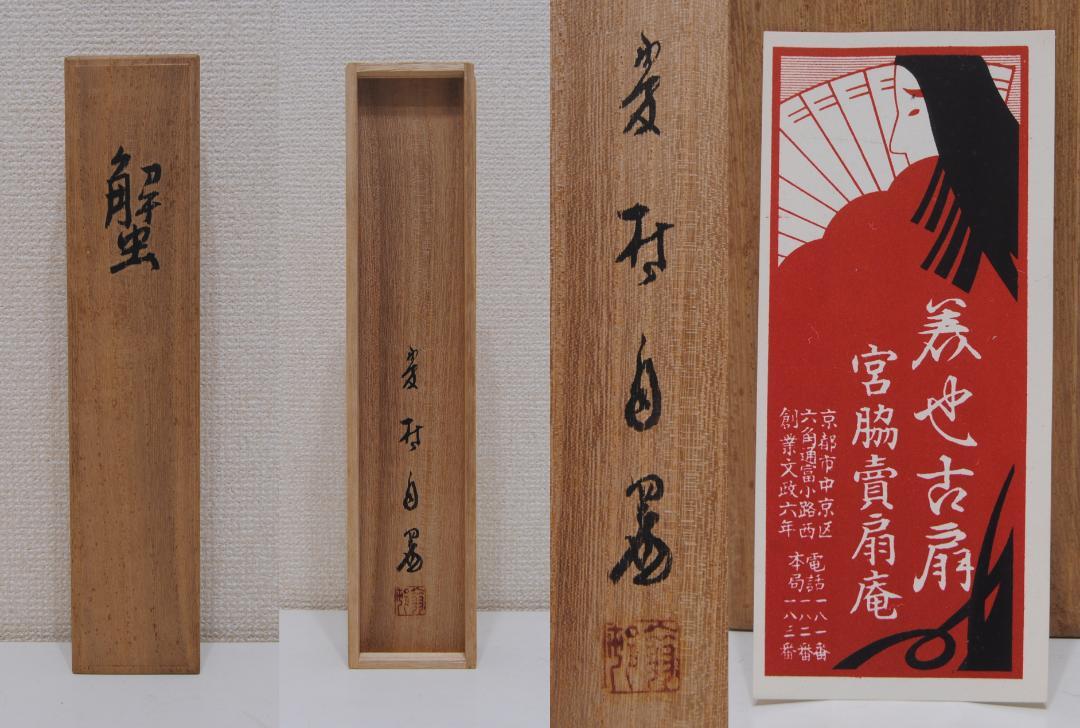 蟹
自署
自署
美也古扇
宮脇賣扇庵
京都市中京区
六角通富小路西
創業文政六年
電話一八一番
一八二番
本局一八三番